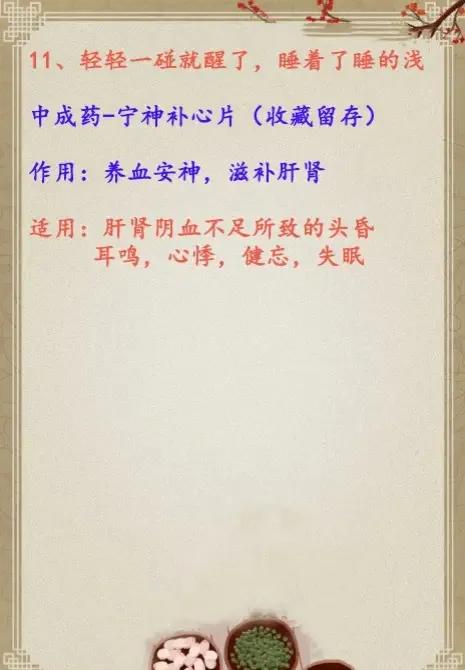 11、轻轻一碰就醒了，睡着了睡的浅
中成药-宁神补心片（收藏留存）
作用：养血安神，滋补肝肾
适用：肝肾阴血不足所致的头昏
耳鸣，心悸，健忘，失眠